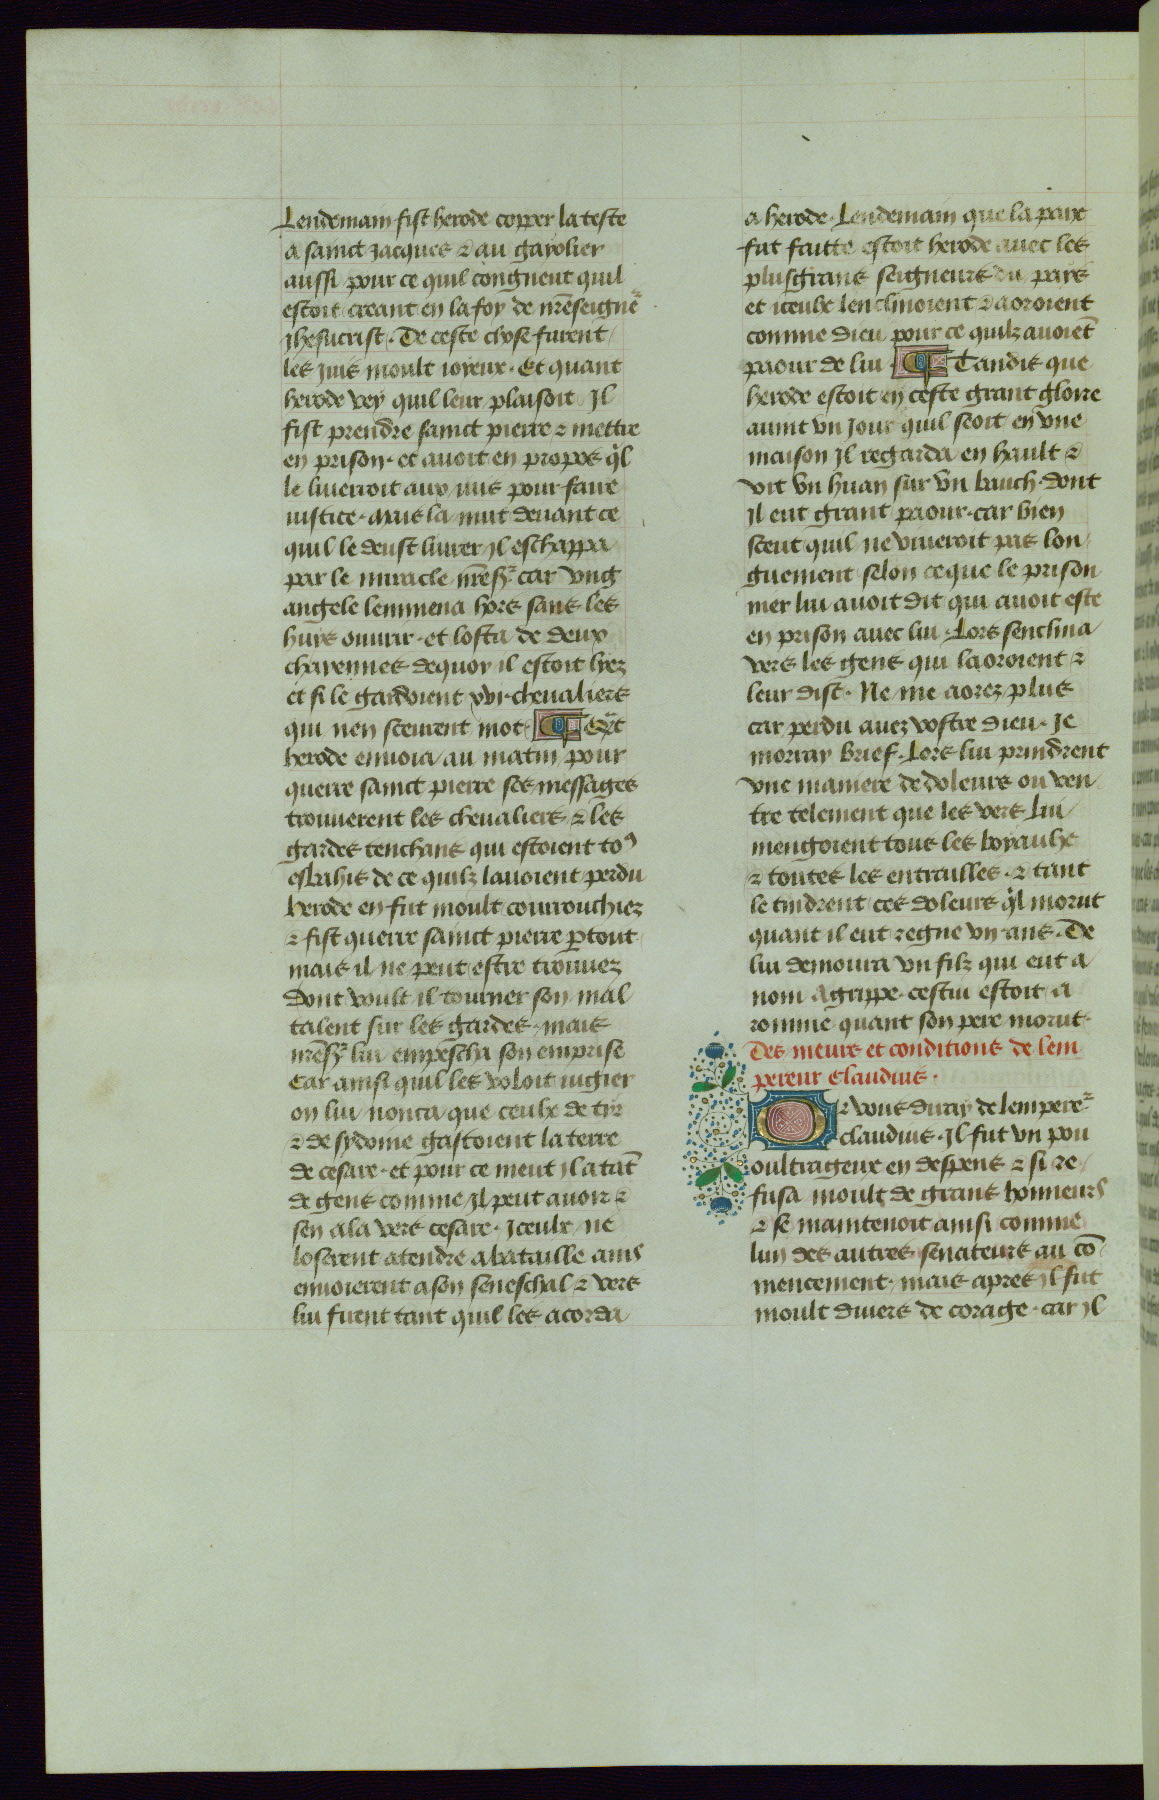 Lendemain fist herode copper la teste
a sainct Jacques ⁊ au gayolier
aussi pour ce quil congneut quil
estoit creant en la foy de nr̄e seignr̄
Jhesucrist. De ceste chose furent
les juis moult ioyeux. Et quant
herode vey quil leur plaisoit Il
fist prendre sainct pierre ⁊ mettre
en prison. et auoit en propos q̇l
le liuerroit aux iuis pour faire
iustice. mais la nuit deuant ce
quil le deust liurer il eschappa
par le miracle nr̄e sr̄ car vng
angele lemmena hors sans les
huys ouurir. et losta de deux
chayennes dequoy il estoit lyez
et si le gardoient xvi. cheualiers
qui nen sceurent mot. Et qt̄
herode enuoia au matin pour
querre sainct pierre ses messages
trouuerent les cheualiers ⁊ les
gardes tenchans qui estoient to⁹
esbahis de ce quilz lauoient perdu
herode en fut moult courrouchiez
⁊ fist querre sainct pierre ꝑtout
mais il ne peut estre trouuez
dont voult il tourner son mal
talent sur les gardes. mais
nr̄e sr̄ lui empescha son emprise
Car ainsi quil les voloit iugier
on lui nonca que ceulx de tyr
⁊ de sydome gastoient la terre
de cesare. et pour ce meut il a tāt
de gens comme il peut auoir ⁊
sen ala vers cesare. Iceulx ne
loserent atendre a bataille ains
enuoierent a son seneschal ⁊ vers
lui firent tant quil les acorda
a herode. Lendemain que la paix
fut faitte estoit herode auec les
plus grans seigneurs du pays
et iceulx lenclinoient ⁊ aoroient
comme dieu pour ce quilz auoiēt
paour de lui. Tandis que
herode estoit en ceste grant gloire
auint vn jour quil seoit en vne
maison il regarda en hault ⁊
vit vn huan sur vn bauch. dont
il eut grant paour. car bien
sceut quil ne viueroit pas lon
guement selon ce que le prison
nier lui auoit dit qui auoit este
en prison auec lui. Lors senclina
vers les gens qui laoroient ⁊
leur dist. Ne me aorez plus
car perdu auez vostre dieu. Je
morray brief. Lors lui prindrent
vne maniere de doleurs ou ven
tre telement que les vers lui
mengoient tous les boyaulx
⁊ toutes les entrailles. ⁊ tant
le tindrent ces doleurs q̇l morut
quant il eut regne vij ans. De
lui demoura vn filz qui eut a
nom Agrippe. cestui estoit a
romme quant son pere morut.
Des meurs et conditions de lem
pereur Claudius.
Or vous diray de lemperer̄
claudius. Il fut vn pou
oultrageux en despens ⁊ si re
fusa moult de grans honneurs
⁊ se maintenoit ainsi comme
lun des autres senateurs au cō
mencement. mais apres il fut
moult diuers de corage. car il